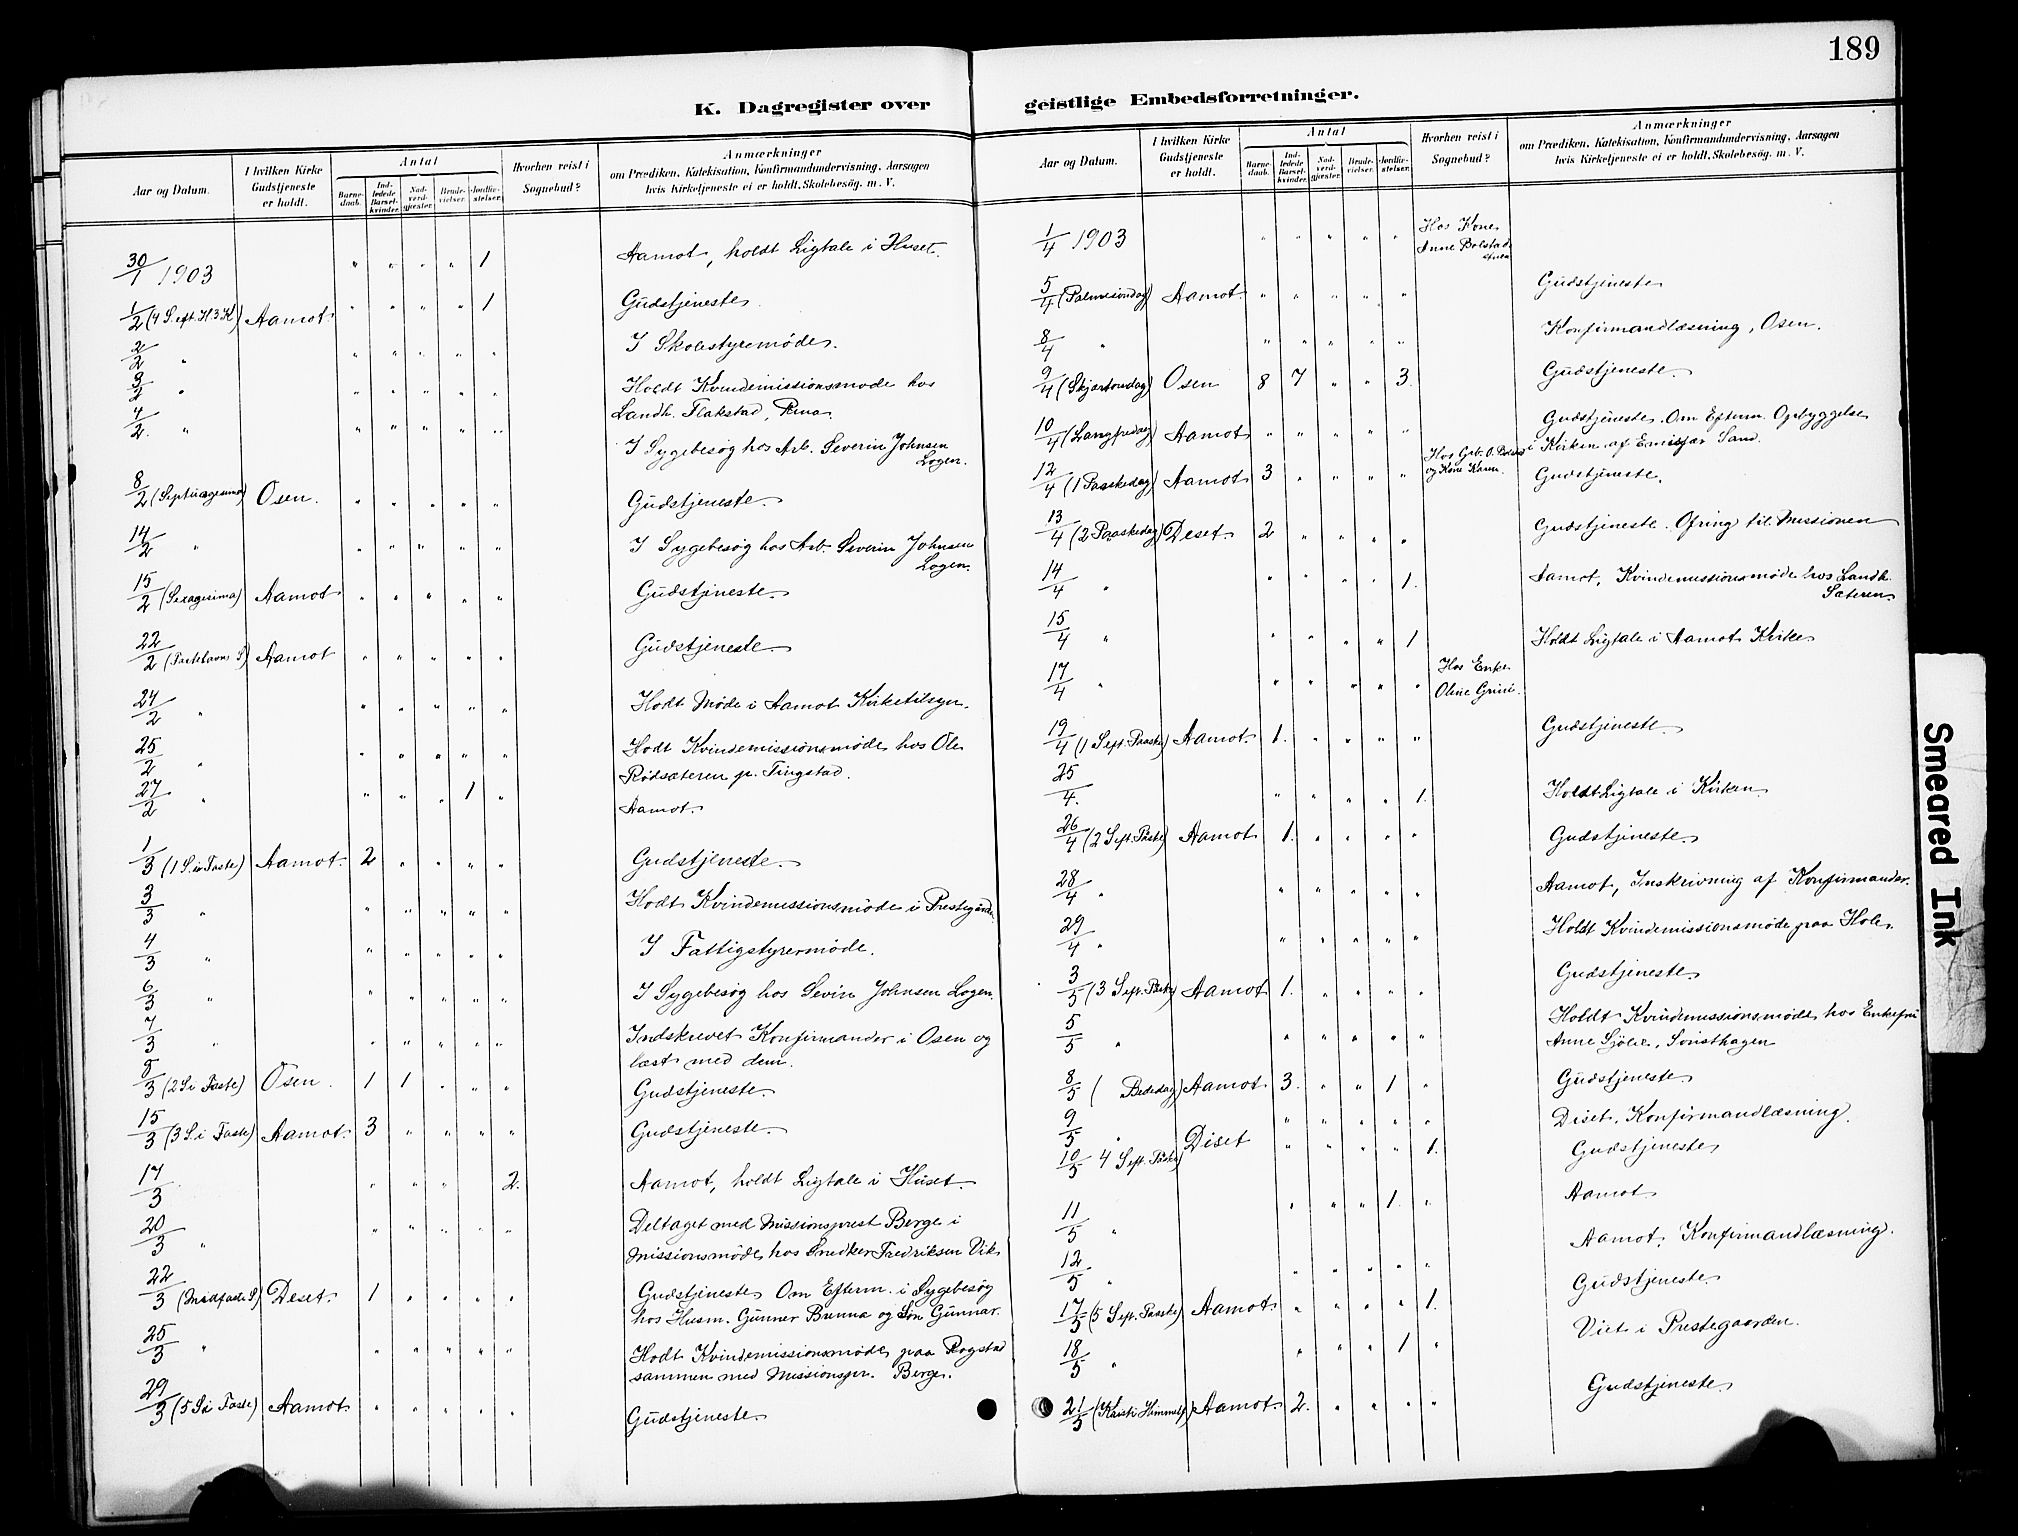 189
K. Dagregister over geistlige Embedsforretninger.
Aar og Datum. | I hvilken Kirke Gudstjeneste er holdt. | Antal | Barnedaab. | Indledede Barselkvinder. | Nadverdgjester. | Brudevielser. | Jordfæstelser. | Hvorhen reist i Sognebud? | Anmærkninger om Prædiken, Katekisation, Konfirmandundervisning, Aarsagen hvis Kirketjeneste ei er holdt, Skolebesög. m. V.
30/1 1903 " " " " 1 Aamot, holdt Ligtale i Huset.
1/2 (4 S. eft. H. 3 K.) Aamot. " " " " 1 Gudstjeneste.
2/2 " " " " " " I Skolestyremöde.
3/2 " " " " " " Holdt Kvindemissionsmøde hos
Landh. Flakstad, Rena.
4/2. " " " " " " I Sygebesøg hos Arb. Severin Johnsen
Logen.
8/2 (Septuagesima) Osen. " " " " " Gudstjeneste.
14/2 " " " " " " I Sygebesøg hos Arb. Severin Johnsen
Logen.
15/2 (Sexagesima) Aamot " " " " " Gudstjeneste.
22/2 (Fastelavns S) Aamot " " " " " Gudstjeneste
24/2 " " " " " " Hodt Møde i Aamot Kirketilsyn.
25/2 " " " " " " Hodt Kvindemissionsmøde hos Ole
Rødsæteren p. Tingstad.
27/2 " " " " 1 " Aamot.
1/3 (1 S. i Faste) Aamot. 2 " " " " Gudstjeneste.
3/3 " " " " " " Hodt Kvindemissionsmøde i Prestegården
4/3 " " " " " " I Fattigstyrermøde.
6/3 " " " " " " I Sygebesøg hos Sevin Johnsen Logen.
7/3 " " " " " " Indskrevet Konfirmander i Osen og
læst med dem.
8/3 (2 S i Faste) Osen. 1 1 " " " Gudstjeneste.
15/3 (3 S. i Faste) Aamot. 3 " " " " Gudstjeneste.
17/3 " " " 2. Aamot, holdt Ligtale i Huset.
20/3 " " " " " " Deltaget med Missionsprest Berge i
Missionsmøde hos Snedker Fredriksen Vik
22/3 (Midfaste S) Deset. 1 " " " " Gudstjeneste Om Efterm. i Sygebesøg
hos Husm. Gunner Brunna og Søn Gunnar.
25/3 " " " " " " Hodt Kvindemissionsmøde paa Rogstad
sammen med Missionspr. Berge.
29/3 (5 S i Faste) Aamot " " " " " Gudstjeneste.
Aar og Datum. | I hvilken Kirke Gudstjeneste er holdt. | Antal | Barnedaab. | Indledede Barselkvinder. | Nadverdgjester. | Brudevielser. | Jordfæstelser. | Hvorhen reist i Sognebud? | Anmærkninger om Prædiken, Katekisation, Konfirmandundervisning, Aarsagen hvis Kirketjeneste ei er holdt, Skolebesög. m. V.
1/4 1903 " " " " " Hos Kone
Anne Bolstad
5/4 (Palmesöndag) Aamot. " " " " " Gudstjeneste
8/4 " " " " " " Konfirmandlæsning, Osen.
9/4 (Skjærtorsdag) Osen 8 7 " " 3. Gudstjeneste.
10/4 (Langfredag) Aamot " " " " " Gudstjeneste. Om Efterm. Opbyggelse
i Kirken af Emisjær Sand.
12/4 (1 Paaskedag) Aamot 3 " " " " Hos Grb. O.
og Kone Karen. Gudstjeneste.
13/4 (2 Paaskedag) Deset. 2 " " " " Gudstjeneste. Ofring til Missionen
14/4 " " " " " 1. Aamot, Kvindemissionsmøde hos Landh.
Sæteren.
15/4 " " " " " 1 Holdt Ligtale i Aamot Kirke
17/4 " " " " " " Hos Enke
Oline Grini.
19/4 (1 S eft. Paaske) Aamot. 1. " " " " Gudstjeneste.
25/4. " " " " 1. Holdt Ligtale i Kirken.
26/4 (2 S eft. Påske) Aamot 1. " " " " Gudstjeneste.
28/4 " " " " " " Aamot, Inskrivning af Konfirmander.
29/4 " " " " " " Holdt Kvindemissionsmøde paa Hole.
3/5 (3 S eft. Påske) Aamot 1. " " " " Gudstjeneste
5/5 " " " " " " Holdt Kvindemissionsmøde hos Enkefru
Anne Sjölie, Sorsthagen
8/5 ( Bededag) Aamot 3. " " 1 " Gudstjeneste.
9/5 " " " " " " Diset, Konfirmandlæsning.
10/5 4 S eft. Påske) Diset " " " " 1. Gudstjeneste
11/5 " " " " 1. " Aamot
12/5 " " " " " " Aamot. Konfirmandlæsning.
17/5 (5 S eft. Paaske) Aamot. " " " " 1. Gudstjeneste.
18/5 " " " " 1 " Viet i Prestegaarden.
21/5 (Kristi Himmelf.) Aamot. 2. " " " " Gudstjeneste.
Smeared Ink